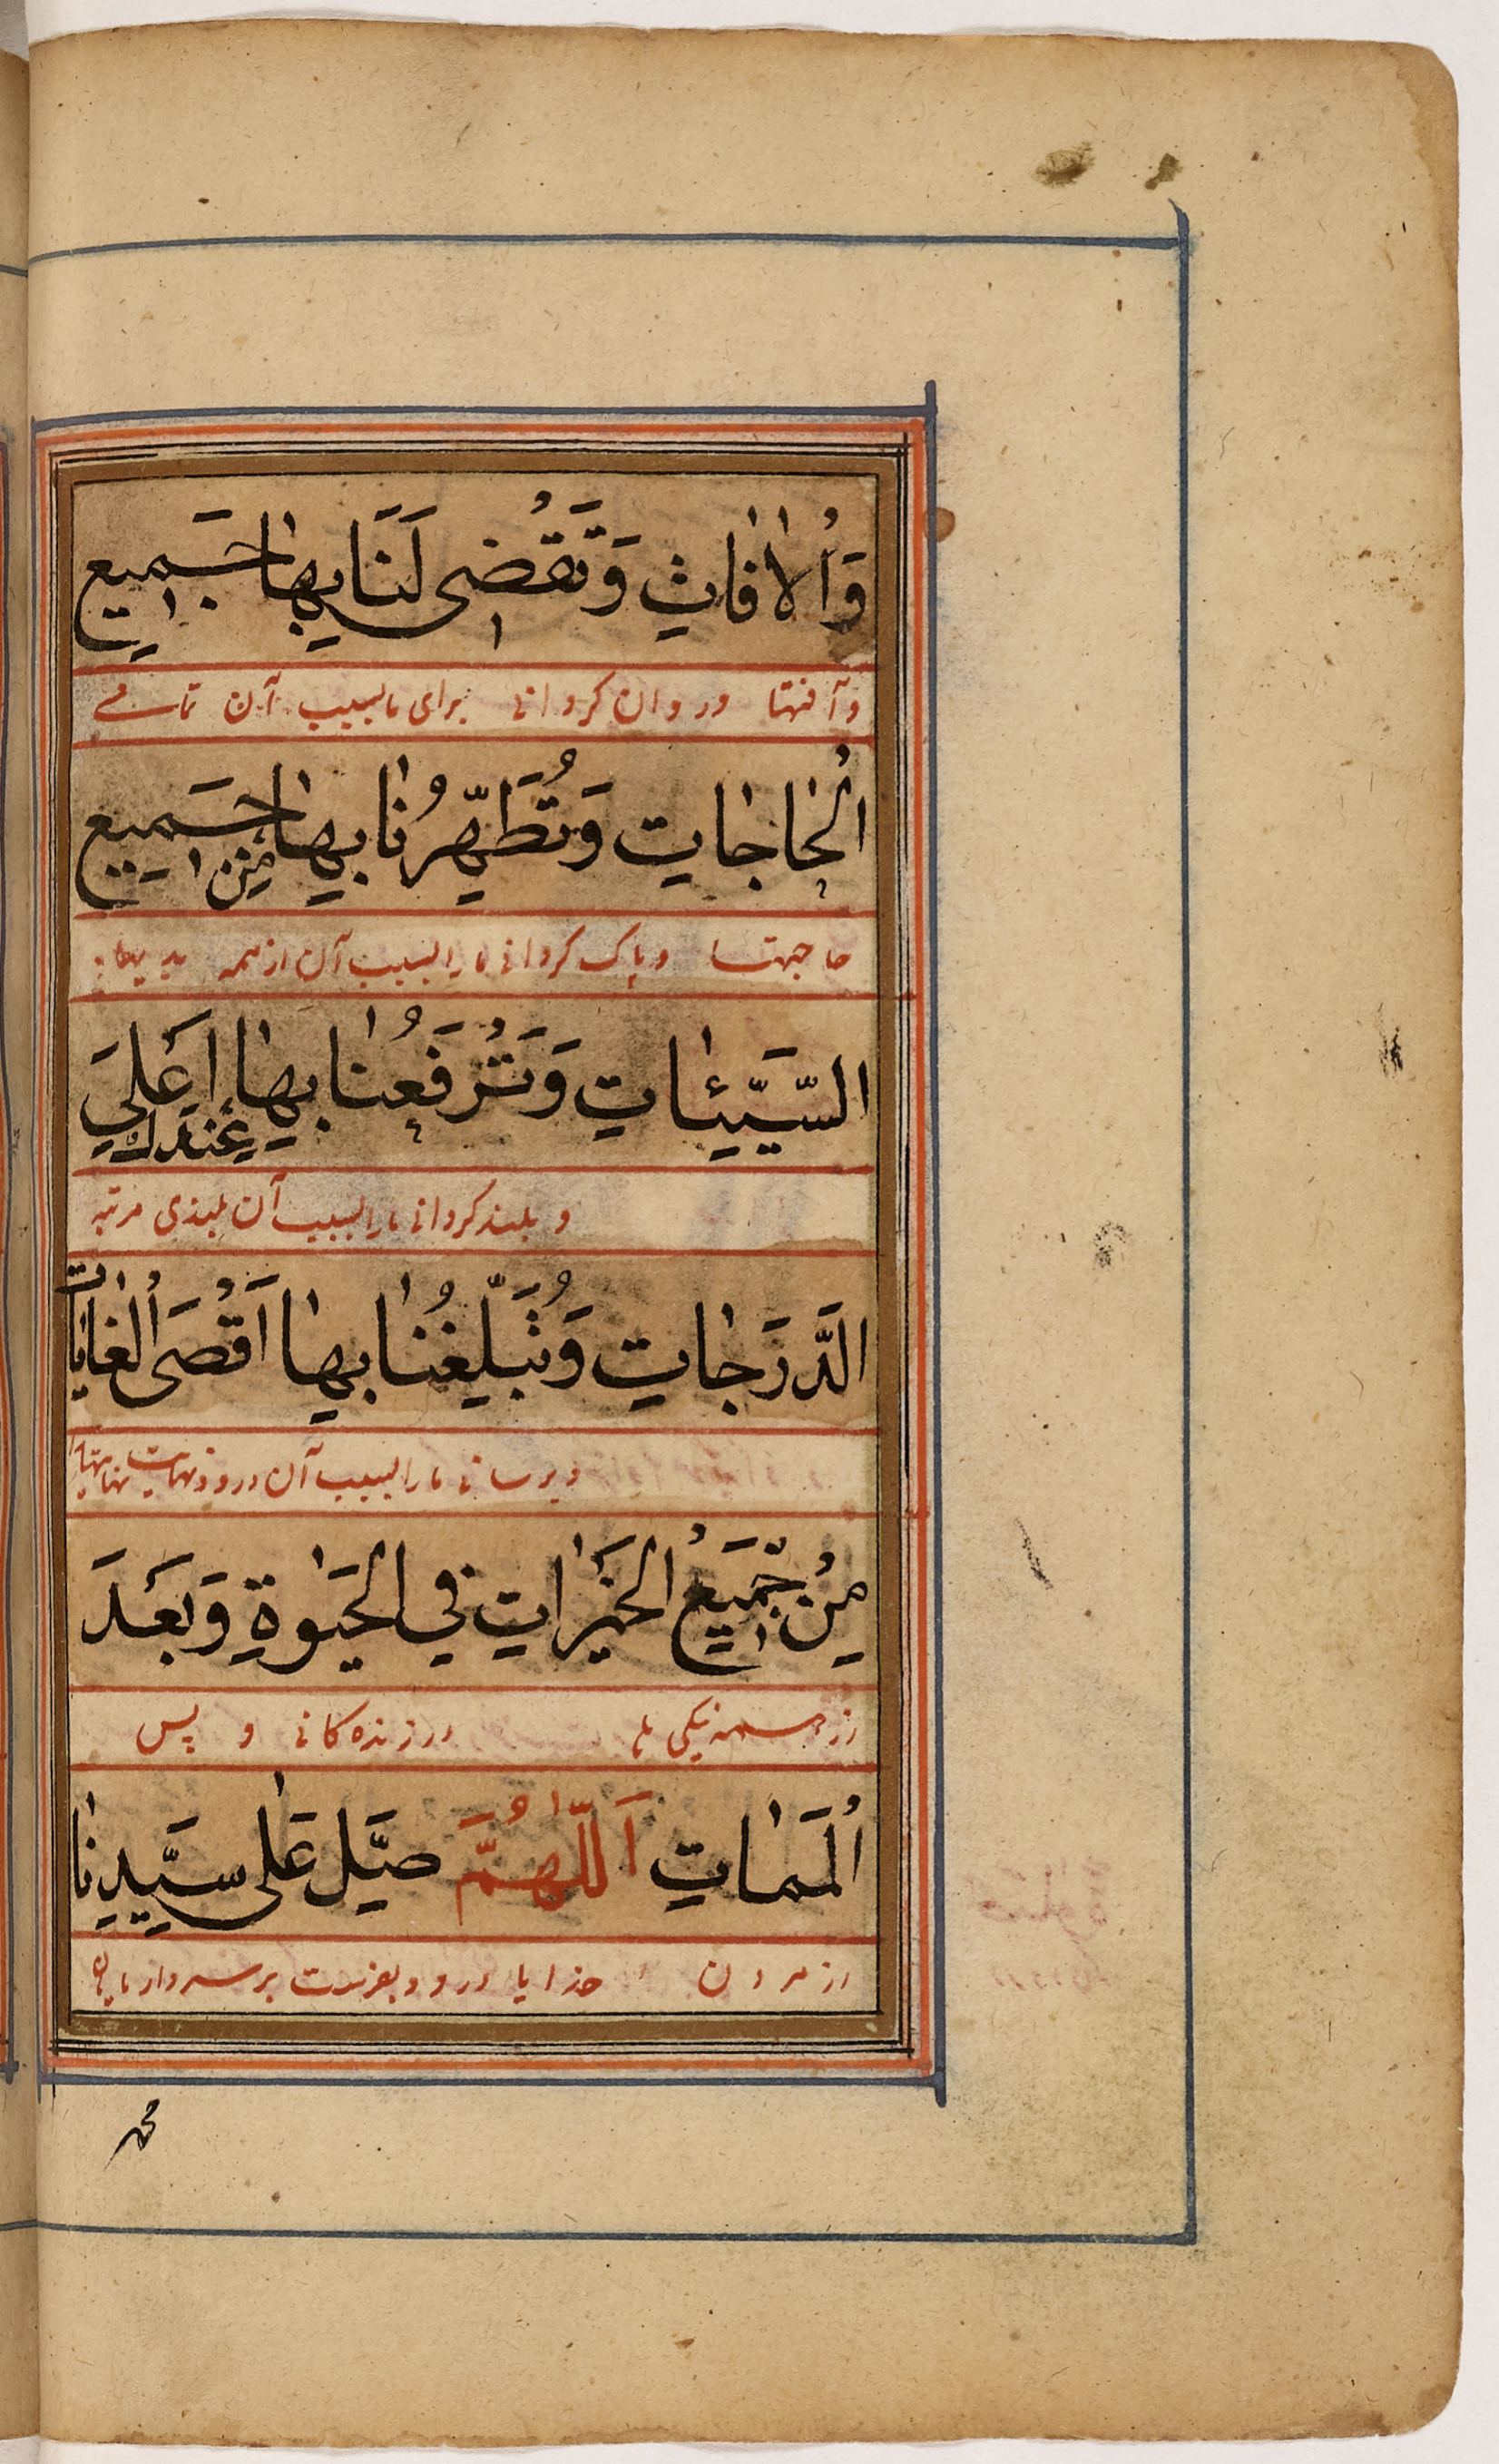 وَالْاٰفَاتِ وَتَقْضِی لَنَا بِهَا جَمِيعِ
و آفتها و روان کردانی برای ما بسبب آن تمامے
الْحَاجَاتِ وَتُطَهِّرُنَا بِهَا مِنْ جَمِيعِ
حاجهتا و پاک کردانی ما را بسبب آن از همه بدیها
السَّيِّئَاتِ وَتَرْفَعُنَا بِهَا عِنْدَكَ اَعْلَی
و بلند کردانی ما را بسبب آن بلندی مرتبه
الدَّرَجَاتِ وَتُبَلِّغُنَا بِهَا اَقْصَی الْغَايَاتِ
و برسانی ما را بسبب آن
مِنْ جَمِيعِ الْخَيْرَاتِ فِي الْحَيٰوةِ وَبَعْدَ
از همه نیکی ها در زنده کانی و پس
الْمَمَاتِ اَللّٰهُمَّ صَلِّ عَلٰی سَيِّدِنَا
از مردن خدایا درود بفرست بر سردار ما
محمد